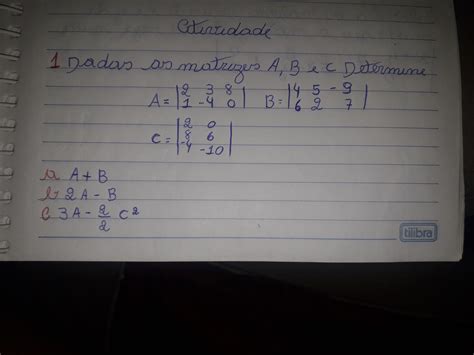 Atividade
1 Dadas as matrizes A, B e C Determine
A = |2 3 8| B = |4 5 -9|
|1 -4 0| |6 2 7|
C = |2 0|
|8 6|
|-4 -10|
a A + B
b 2A - B
c 3A - 2/2 C²
tilibra